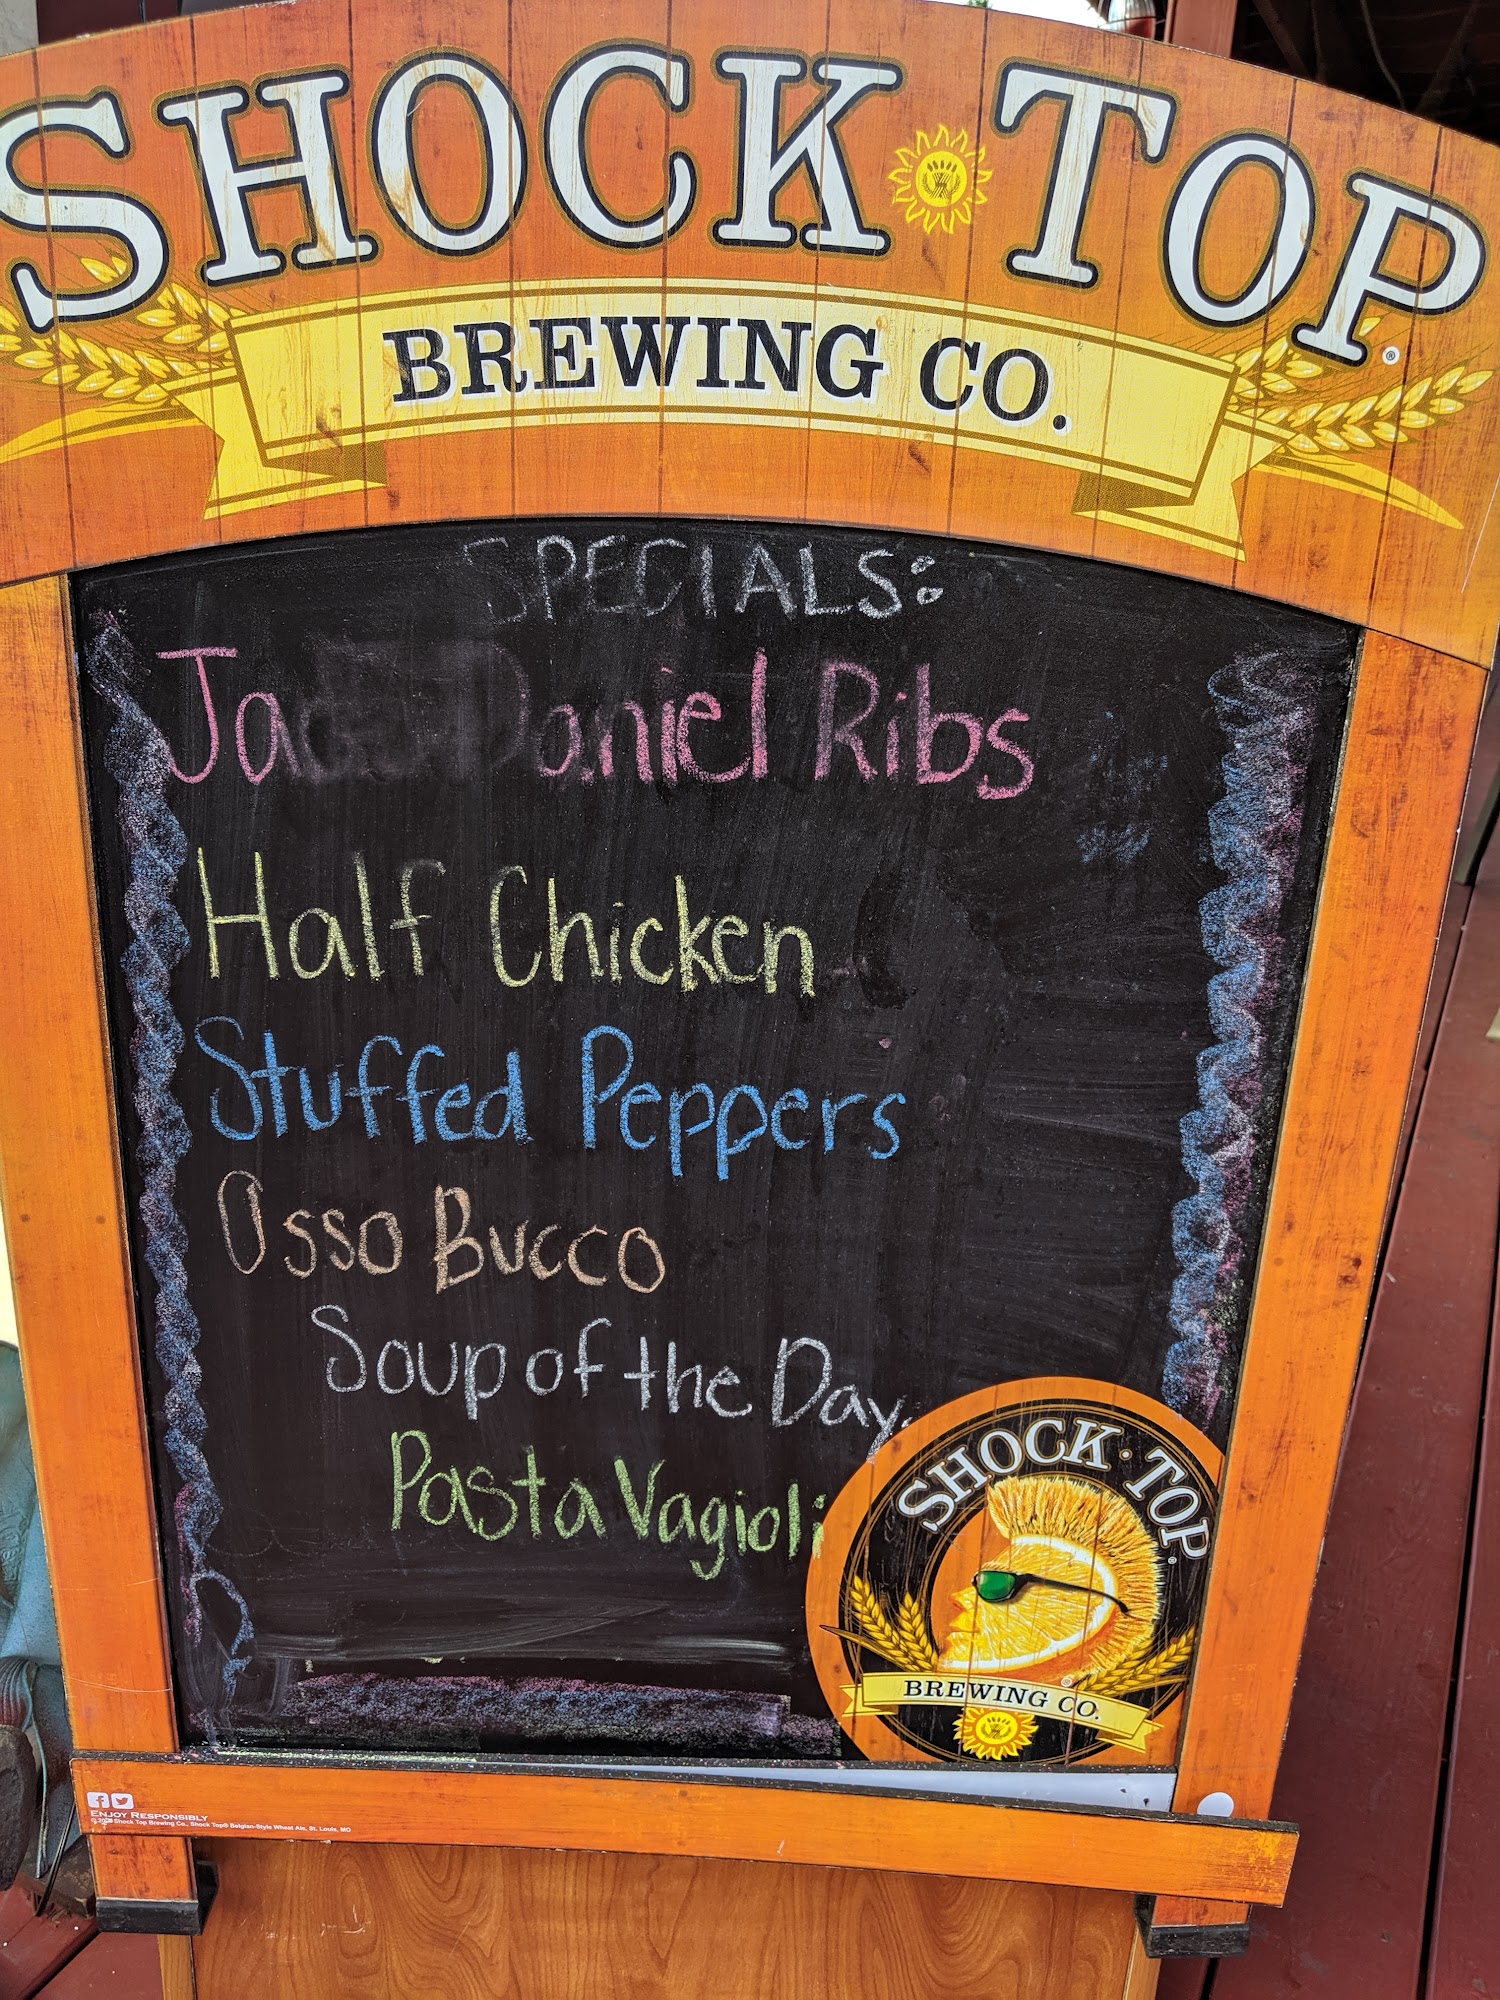 SHOCK TOP
BREWING CO.
SPECIALS:
Jack Daniel Ribs
Half Chicken
Stuffed Peppers
Osso Bucco
Soup of the Day.
Pasta Vagioli
SHOCK · TOP
BREWING CO.
ENJOY RESPONSIBLY
Shock Top Brewing Co., Shock Top® Belgian-Style Wheat Ale, St. Louis, MO